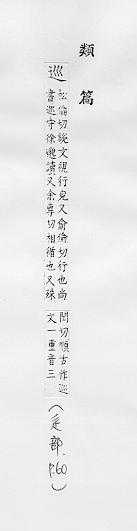 類篇
巡
松倫切說文視行皃又俞倫切行也尚
書巡守徐邈讀又余專切相循也又殊
閏切順古作巡
文一重音三
(辵部 P.60)